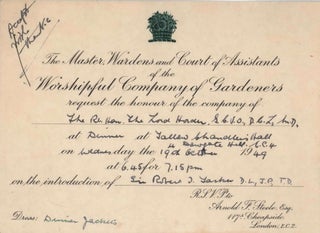 Accept
The Master, Wardens and Court of Assistants
of the
Worshipful Company of Gardeners
request the honour of the company of
The Rt. Hon. The Lord Horder, G.C.V.O., D.C.L., M.D.
at Dinner at Tallow Chandlers Hall
4 Dowgate Hill, E.C.4
on Wednesday the 19th October 1949
at 6.45 for 7.15 p.m.
on the introduction of Sir Robert J. D.L., J.P., T.D.
R.S.V.P. to
Arnold F. Steele, Esq.
117, Cheapside,
London, E.C.2.
Dress: Dinner Jackets